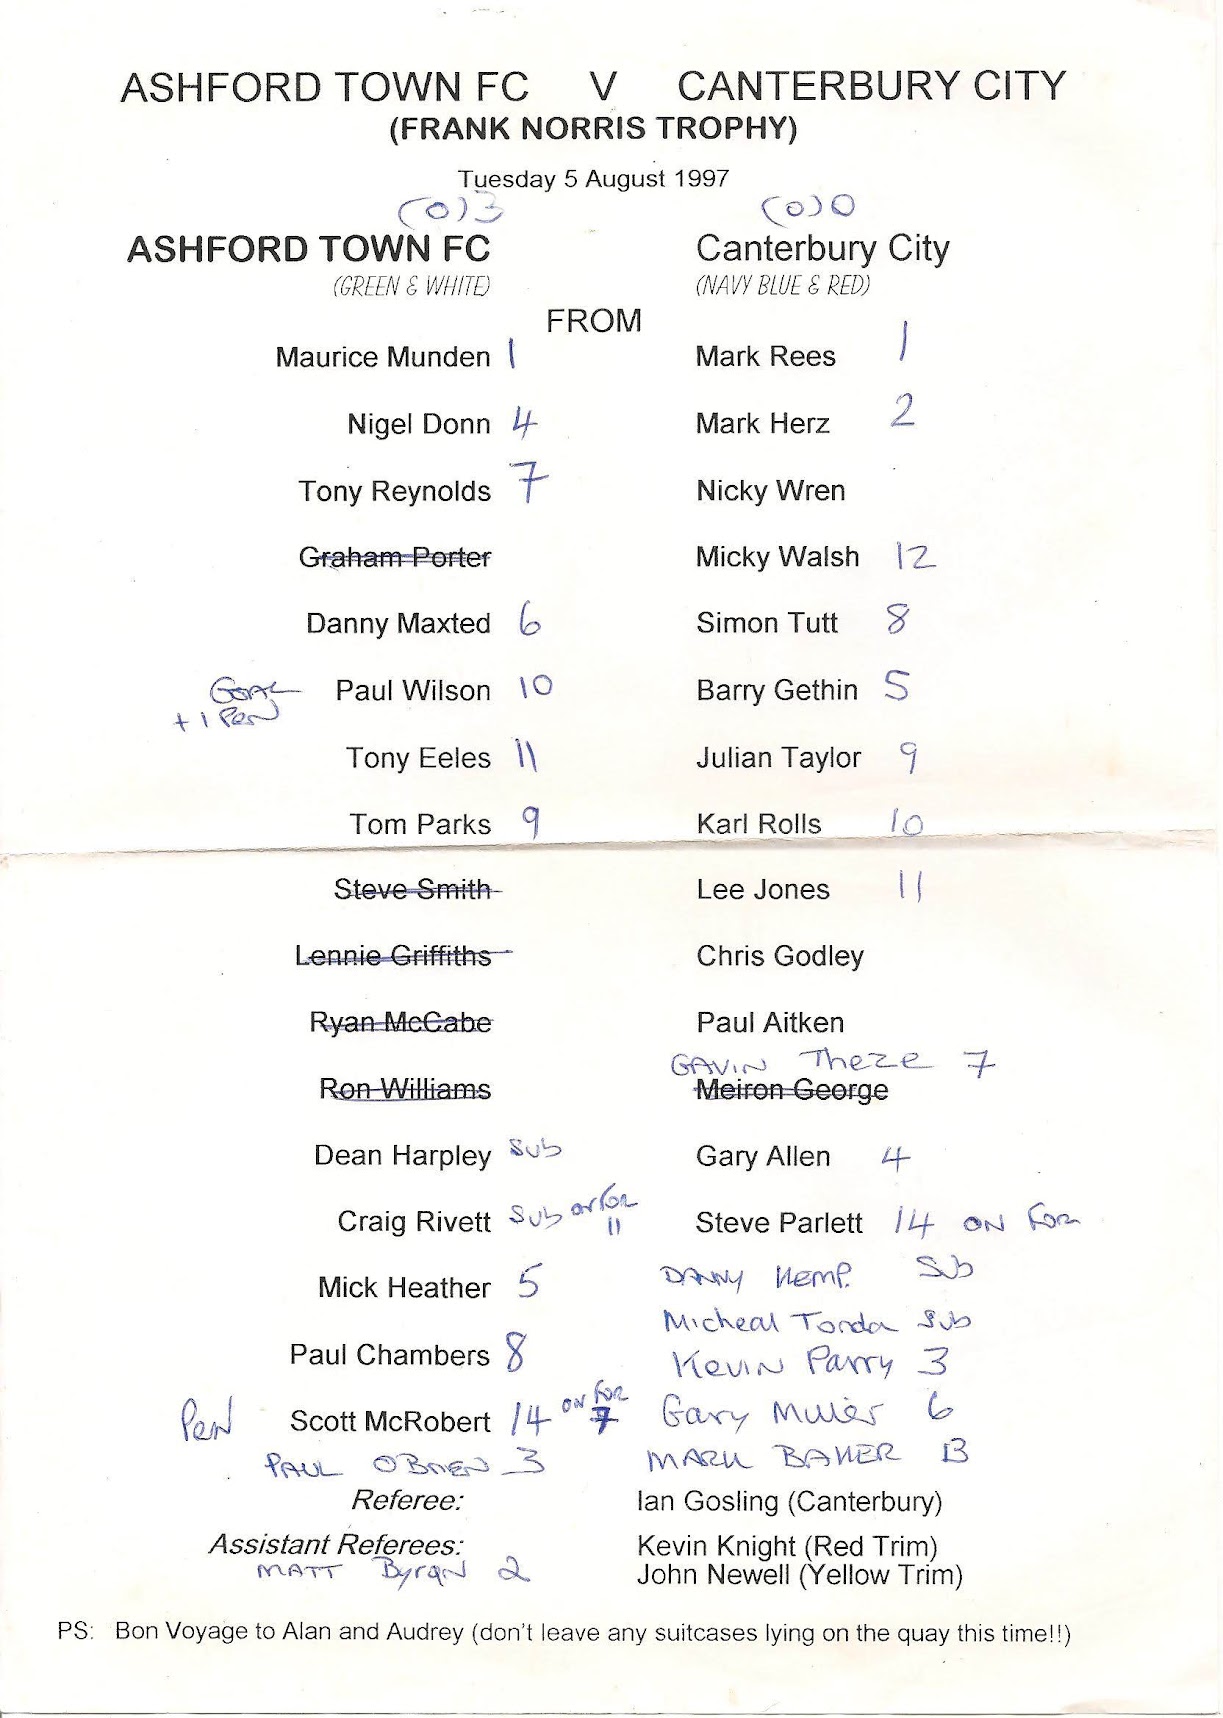 ASHFORD TOWN FC V CANTERBURY CITY
(FRANK NORRIS TROPHY)
Tuesday 5 August 1997
(0)3 (0)0
ASHFORD TOWN FC Canterbury City
(GREEN & WHITE) (NAVY BLUE & RED)
FROM
Maurice Munden 1 Mark Rees 1
Nigel Donn 4 Mark Herz 2
Tony Reynolds 7 Nicky Wren
Graham Porter Micky Walsh 12
Danny Maxted 6 Simon Tutt 8
GOAL Paul Wilson 10 Barry Gethin 5
+ 1 Pen
Tony Eeles 11 Julian Taylor 9
Tom Parks 9 Karl Rolls 10
Steve Smith Lee Jones 11
Lennie Griffiths Chris Godley
Ryan McCabe Paul Aitken
GAVIN 7
Ron Williams Meiron George
Dean Harpley sub Gary Allen 4
Craig Rivett sub on for 11 Steve Parlett 14 ON FOR
Mick Heather 5 DANNY KEMP. Sub
Micheal Sub
Paul Chambers 8 KEVIN Parry 3
Pen Scott McRobert 14 on for 7 Gary 6
PAUL OBRIEN 3 MARK BAKER
Referee: Ian Gosling (Canterbury)
Assistant Referees: Kevin Knight (Red Trim)
MATT 2 John Newell (Yellow Trim)
PS: Bon Voyage to Alan and Audrey (don't leave any suitcases lying on the quay this time!!)